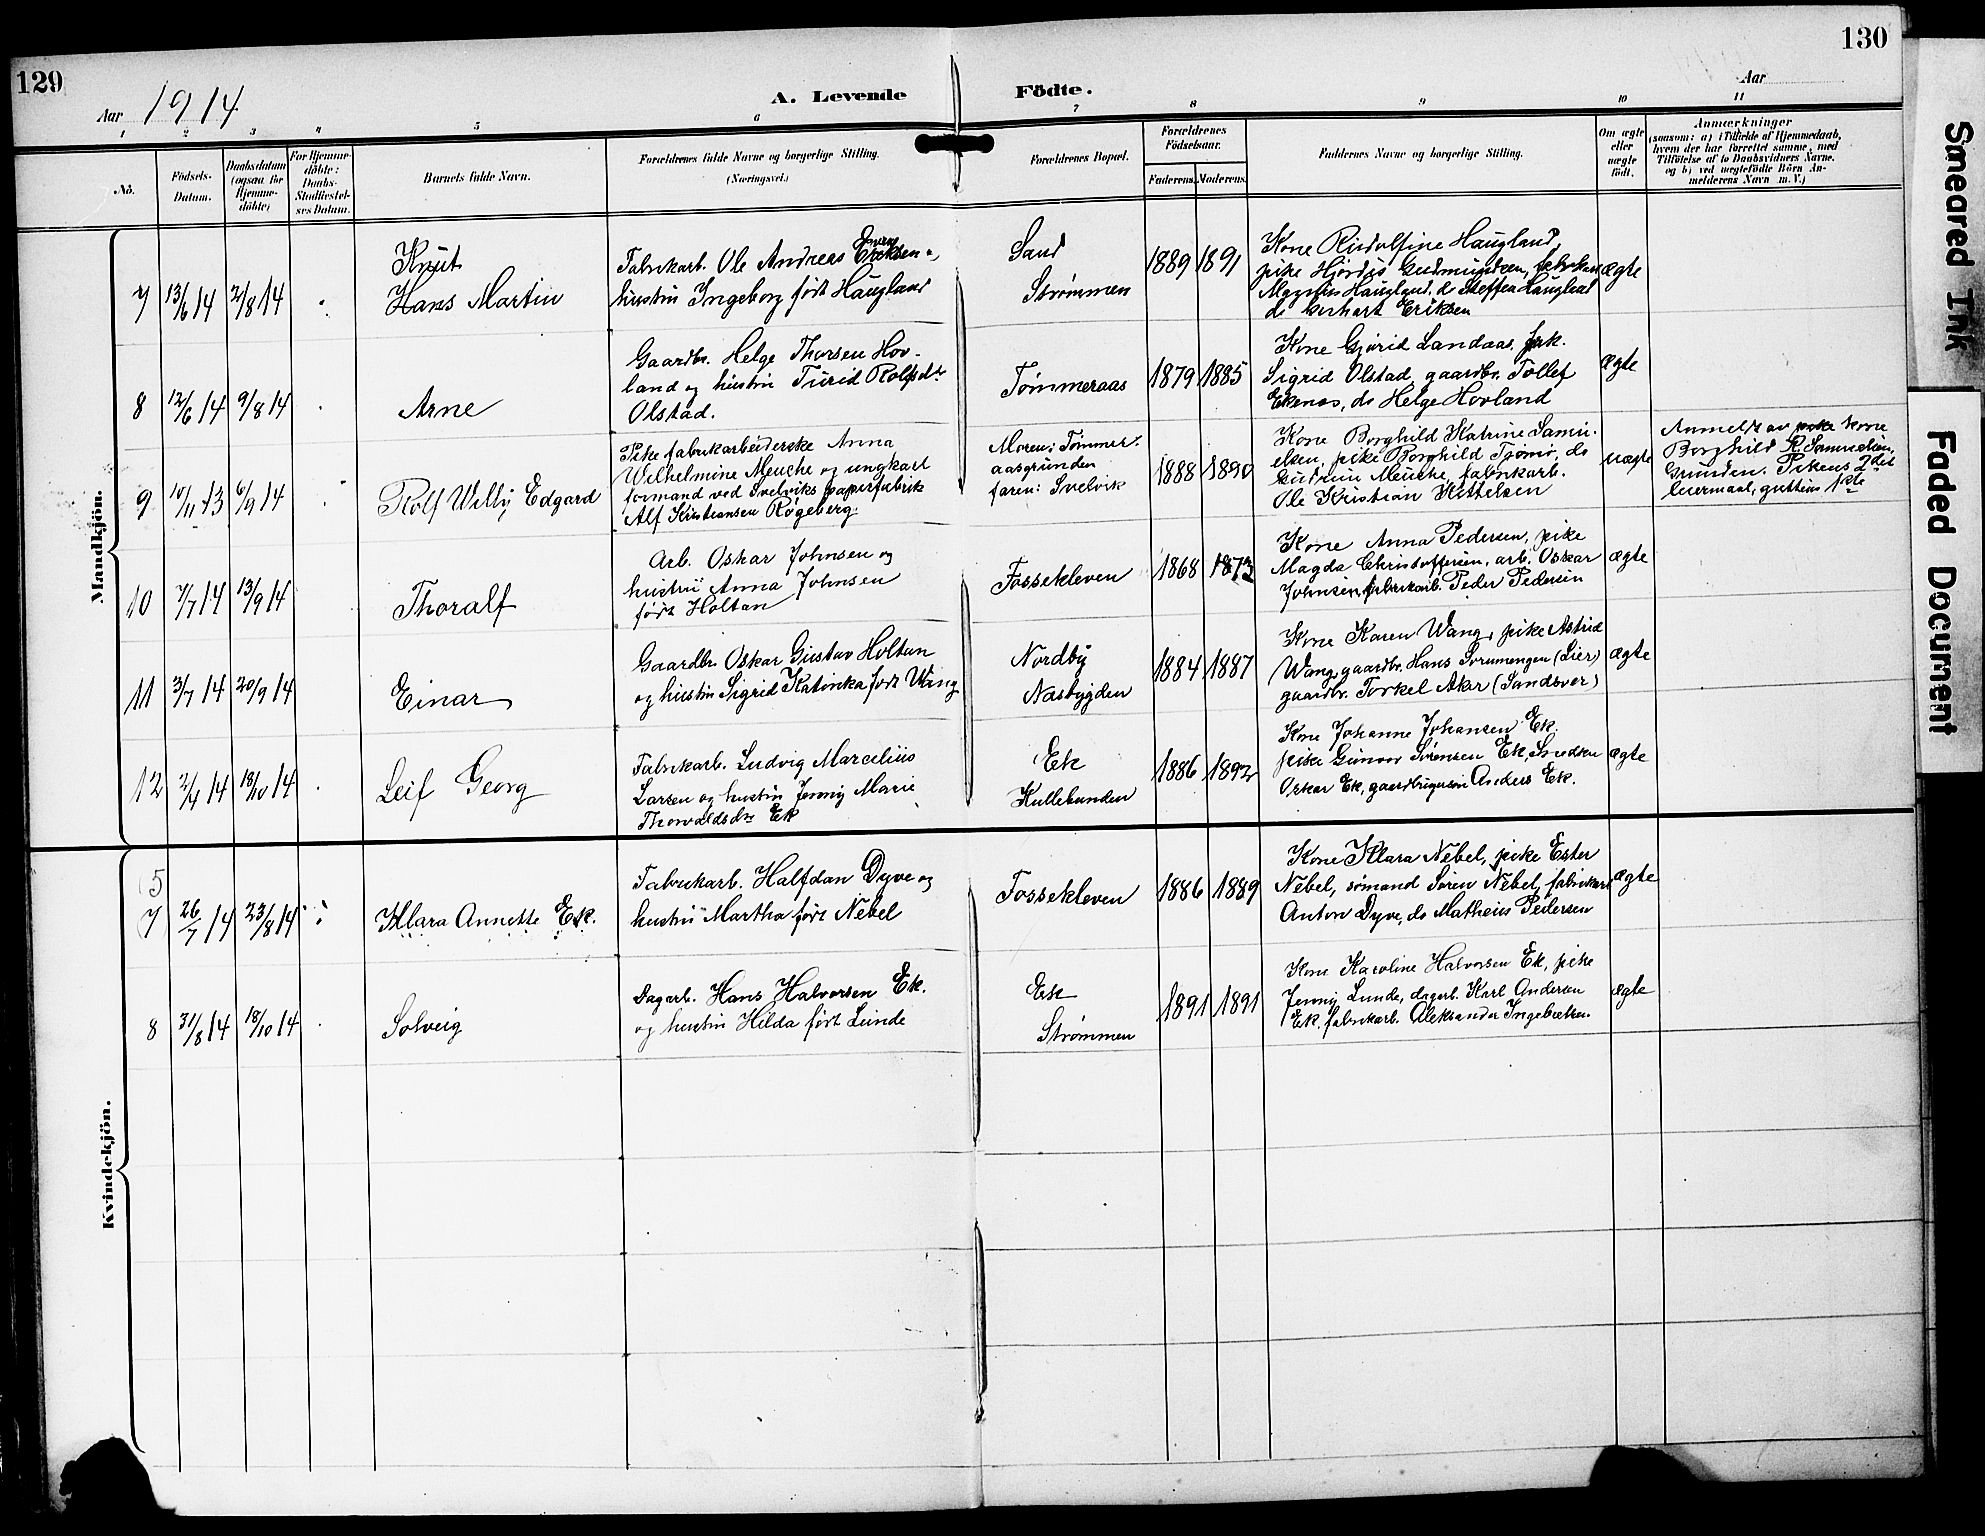 129
130
Aar 1914
A. Levende Födte.
Aar
1 2 3 4 5 6 7 8 9 10 11
No.
Födsels-
Datum.
Daabsdatum
(ogsaa for
Hjemme-
döbte)
For Hjemme-
döbte:
Daabs-
Stadfæstel-
ses Datum.
Barnets fulde Navn.
Forældrenes fulde Navne og borgerlige Stilling.
(Næringsvei.)
Forældrenes Bopæl.
Forældrenes
Födselsaar.
Faderens.
Moderens.
Faddernes Navne og borgerlige Stilling.
Om ægte
eller
uægte
födt.
Anmærkninger
(saasom: a) i Tilfælde af Hjemmedaab,
hvem der har forrettet samme, med
Tilföielse af to Daabsvidners Navne,
og b) ved uægtefödte Börn An-
melderens Navn m. V.)
Mandkjön.
7 13/6 14 2/8 14
Knut
Hans Martin
Fabrikarb. Ole Andreas Eriksen
hustru Ingeborg født Haugland
Sand
Strømmen
1889 1891
Kone Rudolfine Haugland,
pike Hjørdis Gudmundsen, fabrikarb
Magnus Haugland, do Steffen Haugland
do Gerhart Eriksen
ægte
8 12/6 14 9/8 14
Arne
Gaardbr. Helge Thorsen Hov-
land og hustru Turid Rolfsdt
Olstad.
Tømmeraas
1879 1885
Kone Gjørid Landaas, frk.
Sigrid Olstad, gaardbr. Tollef
Ekenæs, do Helge Hovland
ægte
9 10/11 13 6/9 14
Rolf Willy Edgard
Pike fabrikarbeiderske Anna
Wilhelmine Meuche og ungkarl
formand ved Svelviks papirfabrik
Alf Kristiansen Røgeberg.
Moren: Tømmer-
aasgrunden
faren: Svelvik
1888 1890
Kone Borghild Katrine Samu-
elsen, pike Borghild Tjømø, do
Gudrun Meuche, fabrikarb.
Ole Kristian Kittelsen
uægte
Anmeldt av pike kone
Borghild K. Samuelsen,
Grunden. Pikens 2det
leiermaal, guttens 1ste
10 7/7 14 13/9 14
Thoralf
Arb. Oskar Johnsen og
hustru Anna Johnsen
født Holtan
Fossekleven
1868 1873
Kone Anna Pedersen, pike
Magda Christoffersen, arb. Oskar
Johnsen, fabrikarb. Peder Pedersen
ægte
11 3/7 14 20/9 14
Einar
Gaardbr. Oskar Gustav Holtan
og hustru Sigrid Katinka født Wang
Nordby
Nasbygden
1884 1887
Kone Karen Wang, pike Astrid
Wang, gaardbr. Hans (Lier)
gaardbr. Torkel Aker (Sandsver)
ægte
12 2/4 14 18/10 14
Leif Georg
Fabrikarb. Ludvig Marcelius
Larsen og hustru Jenny Marie
Thorvaldsdtr Ek
Ek
Kullebunden
1886 1892
Kone Johanne Johansen Ek,
pike Gunvor Sørensen Ek, Snedker
Oskar Ek, gaardbrugersøn Anders Ek.
ægte
Kvindekjön.
(5
7) 26/7 14 23/8 14
Klara Annette Ek.
Fabrikarb. Halfdan Dyve og
hustru Martha født Nebel
Fossekleven
1886 1889
Kone Klara Nebel, pike Ester
Nebel, sømand Søren Nebel, fabrikarb
Anton Dyve, do Matheus Pedersen
ægte
8 31/8 14 18/10 14
Solveig
Dagarb. Hans Halvorsen Ek.
og hustru Hilda født Lunde
Ek
Strømmen
1891 1891
Kone Karoline Halvorsen Ek, pike
Jenny Lunde, dagarb. Karl Andersen
Ek, fabrikarb. Aleksander Ingebretsen.
ægte
Smeared Ink
Faded Document